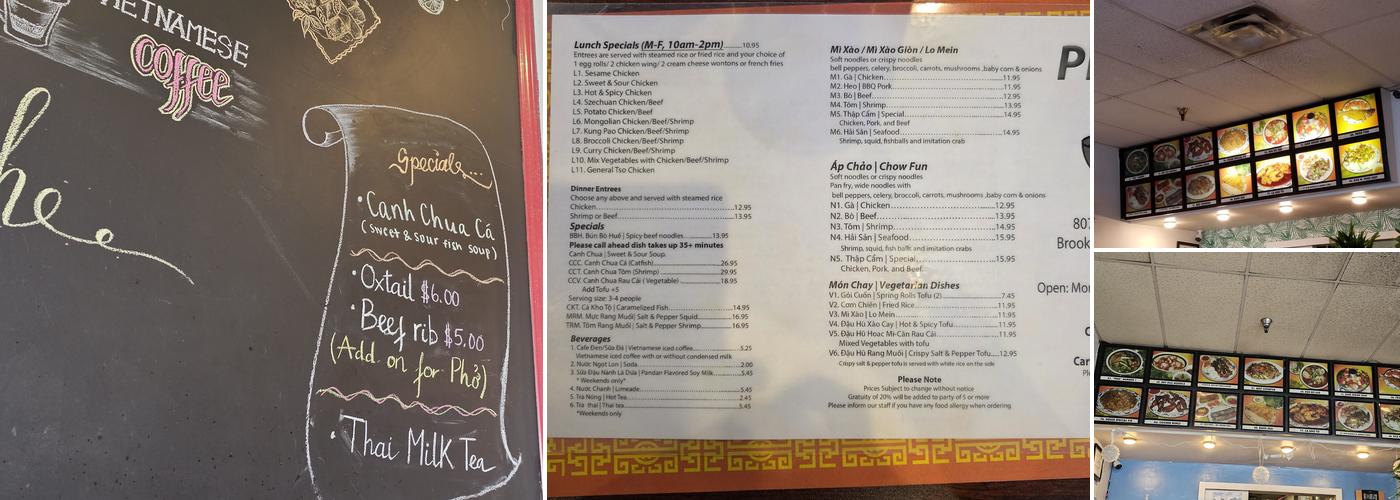 VIETNAMESE
coffee
he
Specials...
• Canh Chua Cá
(sweet & sour fish soup)
• Oxtail $6.00
• Beef rib $5.00
(Add on for Phở)
• Thai Milk Tea
Lunch Specials (M-F, 10am-2pm)..........10.95
Entrees are served with steamed rice or fried rice and your choice of
1 egg rolls/ 2 chicken wing/ 2 cream cheese wontons or french fries
L1. Sesame Chicken
L2. Sweet & Sour Chicken
L3. Hot & Spicy Chicken
L4. Szechuan Chicken/Beef
L5. Potato Chicken/Beef
L6. Mongolian Chicken/Beef/Shrimp
L7. Kung Pao Chicken/Beef/Shrimp
L8. Broccoli Chicken/Beef/Shrimp
L9. Curry Chicken/Beef/Shrimp
L10. Mix Vegetables with Chicken/Beef/Shrimp
L11. General Tso Chicken
Dinner Entrees
Choose any above and served with steamed rice
Chicken..........12.95
Shrimp or Beef..........13.95
Specials
BBH. Bún Bò Huế | Spicy beef noodles..........13.95
Please call ahead dish takes up 35+ minutes
Canh Chua | Sweet & Sour Soup.
CCC. Canh Chua Cá (Catfish)..........26.95
CCT. Canh Chua Tôm (Shrimp)..........29.95
CCV. Canh Chua Rau Cải (Vegetable)..........18.95
Add Tofu +5
Serving size: 3-4 people
CKT. Cá Kho Tộ | Caramelized Fish..........14.95
MRM. Mực Rang Muối| Salt & Pepper Squid..........16.95
TRM. Tôm Rang Muối| Salt & Pepper Shrimp..........16.95
Beverages
1. Cafe Đen/Sữa Đá | Vietnamese iced coffee..........5.25
Vietnamese iced coffee with or without condensed milk
2. Nước Ngọt Lon | Soda..........2.00
3. Sữa Đậu Nành Lá Dứa | Pandan Flavored Soy Milk..........5.45
* Weekends only*
4. Nước Chanh | Limeade..........5.45
5. Trà Nóng | Hot Tea..........2.45
6. Trà thái | Thai tea..........5.45
*Weekends only
Mì Xào / Mì Xào Giòn / Lo Mein
Soft noodles or crispy noodles
bell peppers, celery, broccoli, carrots, mushrooms ,baby corn & onions
M1. Gà | Chicken..........11.95
M2. Heo | BBQ Pork..........11.95
M3. Bò | Beef..........12.95
M4. Tôm | Shrimp..........13.95
M5. Thập Cẩm | Special..........14.95
Chicken, Pork, and Beef
M6. Hải Sản | Seafood..........14.95
Shrimp, squid, fishballs and imitation crab
Áp Chảo | Chow Fun
Soft noodles or crispy noodles
Pan fry, wide noodles with
bell peppers, celery, broccoli, carrots, mushrooms ,baby corn & onions
N1. Gà | Chicken..........12.95
N2. Bò | Beef..........13.95
N3. Tôm | Shrimp..........14.95
N4. Hải Sản | Seafood..........15.95
Shrimp, squid, fish balls and imitation crab
N5. Thập Cẩm | Special..........15.95
Chicken, Pork, and Beef.
Món Chay | Vegetarian Dishes
V1. Gỏi Cuốn | Spring Rolls Tofu (2)..........7.45
V2. Cơm Chiên | Fried Rice..........11.95
V3. Mì Xào | Lo Mein..........11.95
V4. Đậu Hũ Xào Cay | Hot & Spicy Tofu..........11.95
V5. Đậu Hũ Hoac Mì-Căn Rau Cải..........11.95
Mixed Vegetables with tofu
V6. Đậu Hũ Rang Muối | Crispy Salt & Pepper Tofu....12.95
Crispy salt & pepper tofu is served with white rice on the side
Please Note
Prices Subject to change without notice
Gratuity of 20% will be added to party of 5 or more
Please inform our staff if you have any food allergy when ordering
807
Brook
Open: Mon
Car